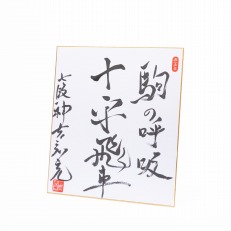 駒の呼吸
十字飛車
七段神吉宏充